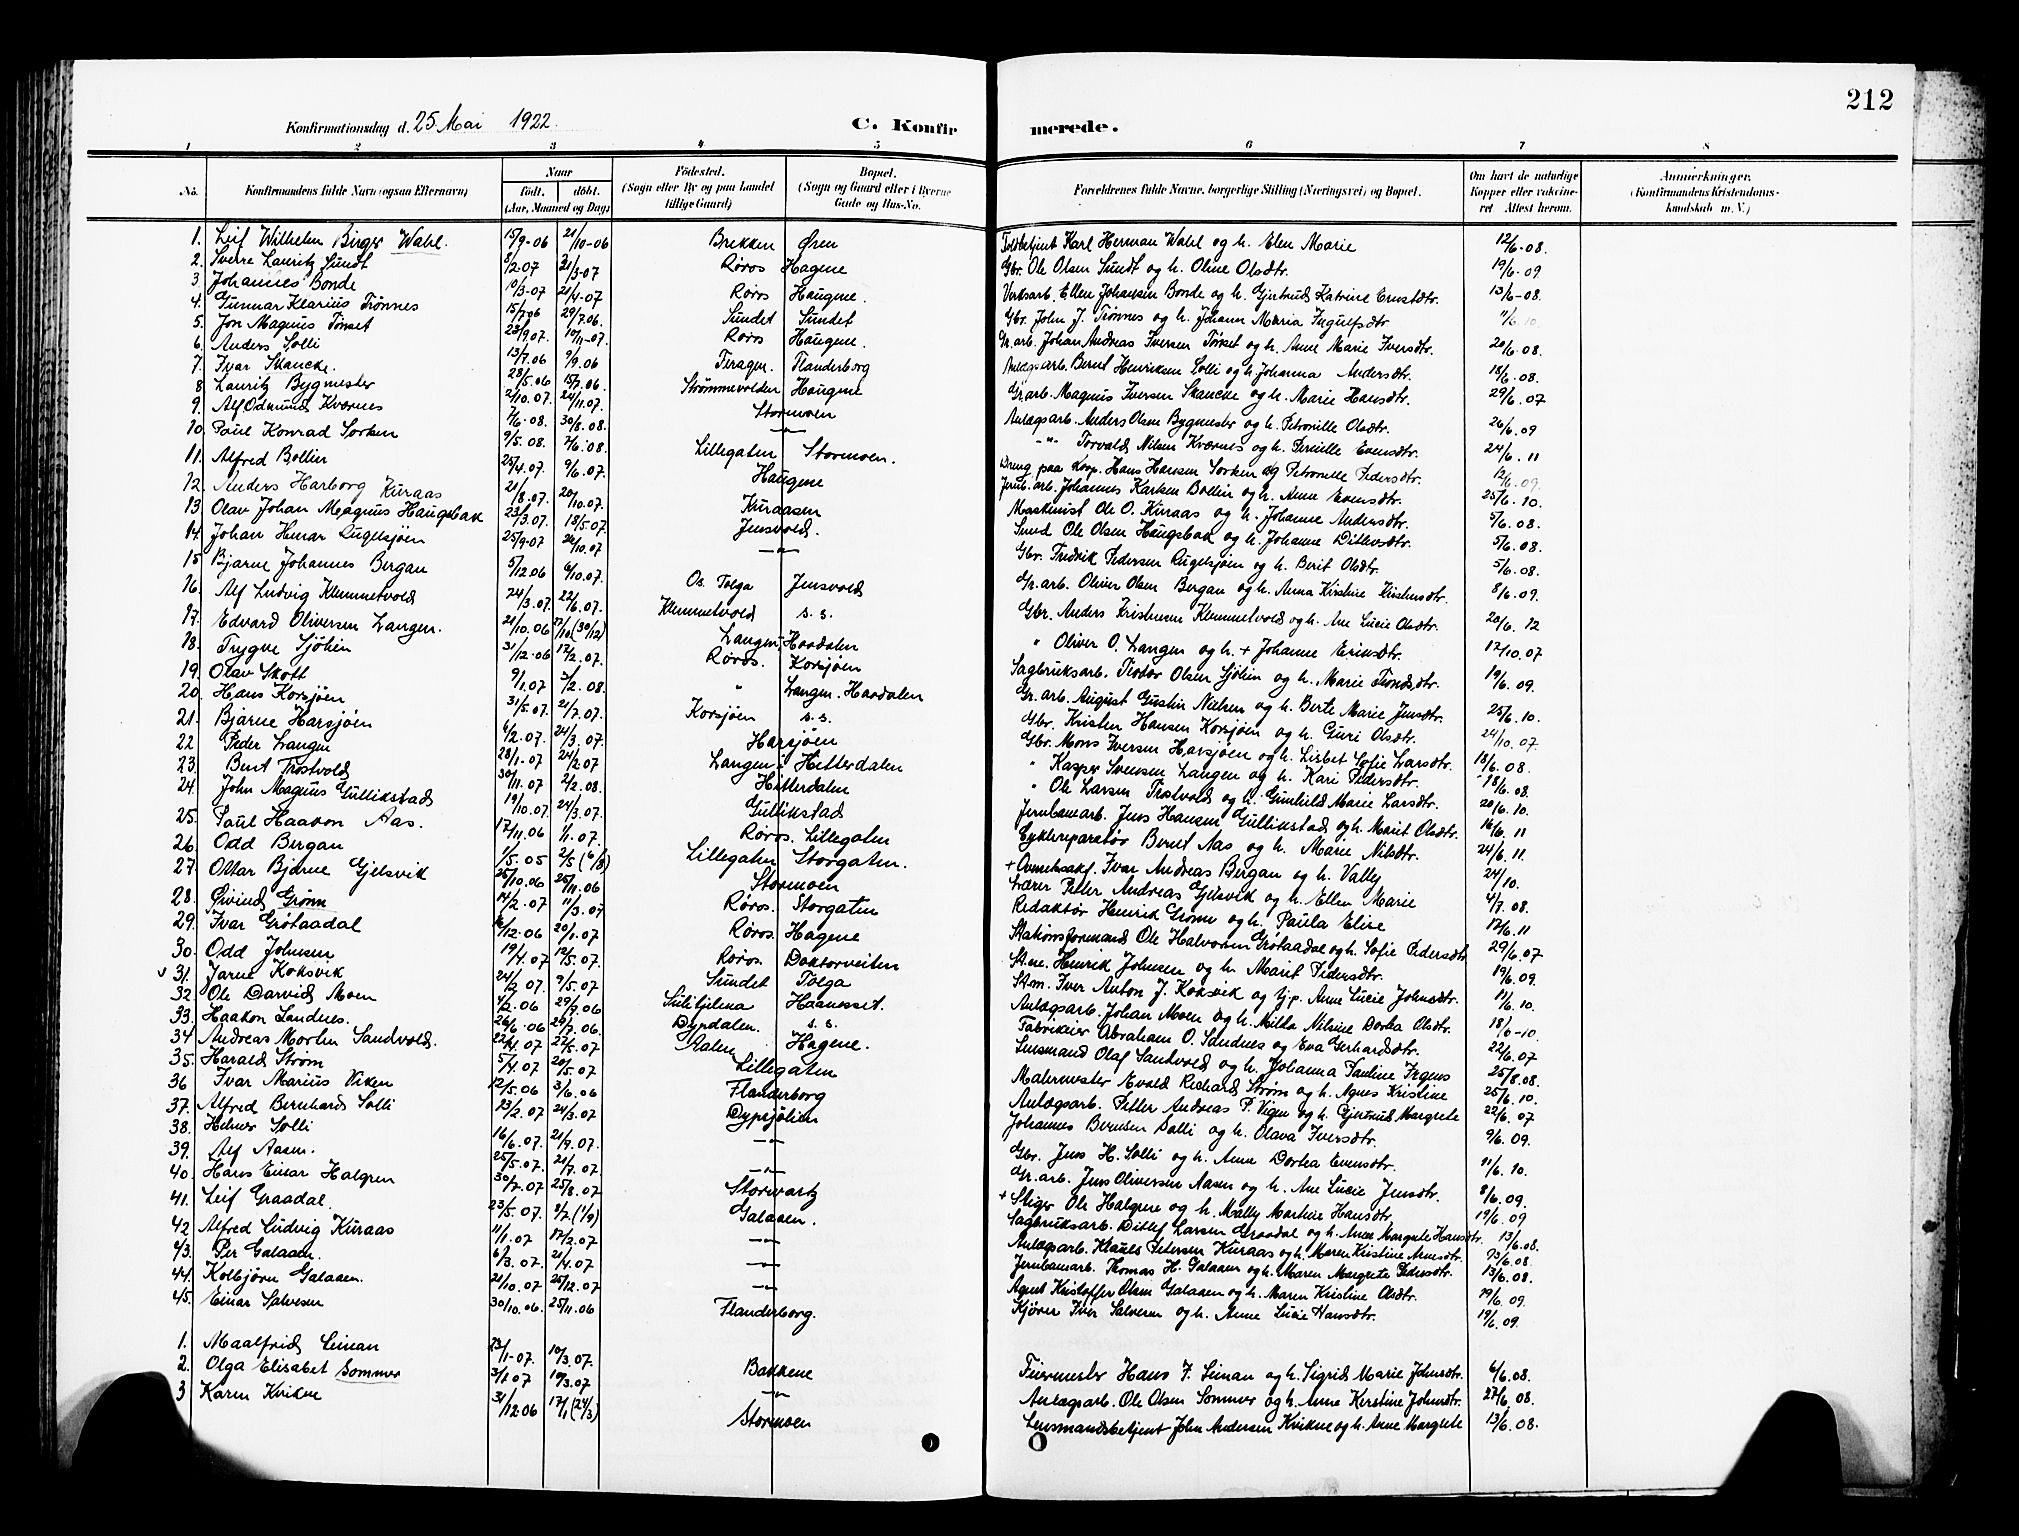 212
Konfirmationsdag d. 25 Mai 1922. C. Konfirmerede.
1 2 3 4 5 6 7 8
No. Konfirmandens fulde Navn (ogsaa Efternavn) Naar født. døbt. (Aar, Maaned og Dag) Fødested. (Sogn eller By og paa Landet tillige Gaard) Bopæl. (Sogn og Gaard eller i Byerne Gade og Hus-No. Forældrenes fulde Navne, borgerlige Stilling (Næringsvei) og Bopæl. Om havt de naturlige Kopper eller vaccineret. Attest herom. Anmerkninger. (Konfirmandens Kristendomskundskab m. V.)
1. Leif Wilhelm Birger Wahl. 15/9-06 21/10-06 Brekken Øren Toldbetjent Karl Herman Wahl og h. Elen Marie 12/6-08.
2. Sverre Lauritz Sundt 8/2-07 21/3-07 Røros Hagene Gbr. Ole Olsen Sundt og h. Oline Olsdtr. 19/6-09
3. Johannes Bonde 10/3-07 21/4-07 Røros Haugene. Verksarb. Ellen Johansen Bonde og h. Gjertrud Katrine Ernstdtr. 13/6-08.
4. Gunnar Klarius Trønnes 15/7.06 29/7.06. Sundet Sundet Gbr. John J. Trønnes og h. Johanna Maria Ingulfsdtr. 11/6.10
5. Jon Magnus Tørset 23/9.07. 10/11-07. Røros Haugene. Gr.arb. Johan Andreas Iversen Tørset og h. Anne Marie Iversdtr. 20/6.08.
6. Anders Solli 13/7.06 9/9.06 Feragen. Flanderborg Anlægsarb. Bernt Henriksen Solli og h. Johanna Andersdtr. 18/6.08.
7. Ivar Skancke. 28/5.06 15/7.06. Strømmevolden Haugene Gr.arb. Magnus Iversen Skancke og h. Marie Hansdtr. 29/6.07
8. Lauritz Bygmester 2/10.07. 24/11.07. Stormoen Anlægsarb. Anders Olsen Bygmester og h. Petronille Olsdtr. 26/6.09
9. Alf Odmund Kværnes 7/6.08. 30/8.08. -"- -"- Torvald Nilsen Kværnes og h. Pernille Evensdtr. 24/6.11
10. Paul Konrad Sorken 9/5.08. 7/6.08. Lillegaten Stormoen. Dreng paa Koop. Hans Hansen Sorken og Petronelle Pedersdtr. 12/6.09.
11. Alfred Bollien 25/4.07. 9/6.07. Haugene Jernb.arb. Johannes Karlsen Bollien og h. Anne Evensdtr. 25/6.10.
12. Anders Harborg Kuraas 21/8.07. 20/10.07. Kuraasen Maskinist Ole O. Kuraas og h. Johanne Andersdtr. 5/6.08.
13. Olav Johan Magnus Haugsbak 23/3.07. 13/5.07 Jensvold. Smed Ole Olsen Haugsbak og h. Johanne Ditlevsdtr. 5/6.08.
14. Johan Henar Rugelsjøen 25/9-07 26/10.07 -"- Gbr. Fredrik Pedersen Rugelsjøen og h. Berit Olsdtr. 5/6.08.
15 Bjarne Johannes Bergan 5/12.06 6/10.07. Os. Tolga Jensvold Gr.arb. Oliver Olsen Bergan og h. Anna Kirstine Kristensdtr. 8/6.09.
16. Alf Ludvig Klemmetvold 24/3.07. 22/6.07. Klemmetvold s.s. Gbr. Anders Kristensen Klemmetvold og h. Ane Lucie Olsdtr. 20/6.12
17. Edvard Oliversen Langen. 21/10.06 (30/12) Langen, Haadalen " Oliver O. Langen og h. + Johanne Eriksdtr. 12/10.07
18. Trygve Sjølien 31/12.06 17/2.07. Røros. Korsjøen Sagbruksarb. Trstar Olsen Sjølien og h. Marie Trondsdtr. 19/6.09.
19. Olav Skott 9/1.07 2/2.08. " Langen. Haadalen Gr.arb. August Gustin Nielsen og h. Berte Marie Jensdtr. 25/6.10.
20. Hans Korsjøen 31/5.07. 21/7.07. Korsjøen s.s. Gbr. Kristen Hansen Korsjøen og h. Guri Olsdtr. 24/10.07.
21. Bjarne Harsjøen 6/2.07. 24/3.07. Harsjøen Gbr. Mons Iversen Harsjøen og h. Lisbet Sofie Larsdtr. 18/6.08.
22 Peder Langen 28/1-07 24/2.07 Langen i Hitterdalen " Kasper Svensen Langen og h. Kari Pedersdtr. 18/6.08
23. Bent Trostvold 30/11.07 2/2.08. Hitterdalen " Ole Larsen Trostvold og h. Gunhild Marie Larsdtr. 20/6.10.
24. John Magnus Gullikstad 19/10.07. 24/3.07. Gullikstad Jernbanearb. Jens Hansen Gullikstad og h. Marit Olsdtr. 16/6.11
25. Paul Haakon Aas. 17/11.06 1/1.07. Røros. Lillegaten Cyklereparatør Bernt Aas og h. Marie Nilsdtr. 24/6.11.
26. Odd Bergan 1/5.05 2/5 (6/8) Lillegaten Storgaten. + Ivar Andreas Bergan og h. Vally 24/10.
27. Ottar Bjarne Gjelsvik 25/10.06 25/11.06 Stormoen Lærer Petter Andreas Gjelsvik og h. Ellen Marie 4/7.08.
28. Øivind Grønn 14/2.07 11/3.07 Røros. Storgaten Redaktør Henrik Grønn og h. Paula Elise 12/6.11
29. Ivar Grøtaadal /12.06 20/1.07 Røros. Hagene Stationsformand Ole Halvorsen Grøtaadal og h. Sofie Pedersdtr 29/6.07
30. Odd Johnsen 19/4.07 12/5.07 Røros. Doktorveiten Henrik Johnsen og h. Marit Pedersdtr. 19/6.09.
v 31. Jarne Koksvik 24/2 07. 9/5.07 Sundet Tolga Stm. Iver Anton J. Koksvik og Anne Lucie Johnsdtr. 11/6.10.
32. Ole Darvid Moen 4/2.06 29/9.06 Sulitjelma Haanesset. Anlægsarb. Johan Moen og h. Milda Nilsine Dorka Olsdtr. 18/6-10
33. Haakon Sandnes. 26/6.06 29/7.06. Dypdalen. s.s. Fabrikeier Abraham O. Sandnes og Eva Gerhardsdtr. 22/6.07
34 Andreas Morten Sandvold. 22/4.07 22/5.07 Aalen Hagene. Lensmand Olaf Sandvold og h. Johanna Pauline Irgens 25/8.08.
35. Harald Strøm 5/4.07 20/5.07 Lillegaten Malermester Evald Richard Strøm og h. Agnes Kristine 25/6.10.
36 Ivar Marius Viken 12/5.06 3/6.06 Flanderborg Anlægsarb. Petter Andreas P. Vigen og h. Gjertrud Margrete 22/6.07
37. Alfred Bernhard Solli 23/2.07 24/3.07 Dypsjølien Johannes Berntsen Solli og h. Olava Iversdtr. 9/6.09.
38. Helmer Solli 16/6.07. 21/9.07. -"- Gbr. Jens H. Solli og h. Anne Dortea Evensdtr. 11/6.10.
39. Alf Aasen. 25/5.07. 21/7.07 -"- Gr.arb. Jens Oliversen Aasen og h. Ane Lucie Jensdtr. 8/6.09.
40. Hans Einar Halgren 30/7.07 25/8.07 Storwartz + Stiger Ole Halgren og h. Mally Martine Hansdtr 19/6.09
41. Leif Graadal. 23/5.07. 8/7 (1/9) Galaaen. Sagbruksarb. Ditlef Larsen Graadal og h. Anne Margrete Hansdtr. 13/6.08.
42 Alfred Ludvig Kuraas 11/1.07 17/2.07 -"- Anlægsarb. Klaus Petersen Kuraas og h. Maren Kristine Arnesdtr. 23/6.08
43. Per Galaaen. 6/3.07. 21/4.07 -"- Jernbanearb. Thomas H. Galaaen og h. Maren Margrete Pedersdtr. 13/6.08.
44. Kolbjørn Galaaen. 21/10.07 25/12.07 -"- Agent Kristoffer Olsen Galaaen og h. Maren Kristine Olsdtr. 19/6.09.
45. Einar Salvesen 30/10.06. 25/11.06 Flanderborg. Kjører Iver Salvesen og h. Anne Lucie Hansdtr. 19/6.09.
1. Maalfrid Seinan 23/1-07. 10/3.07. Bakkene Hans F. Seinan og h. Sigrid Marie Johnsdtr. 6/6.08.
2. Olga Elisabet Sommer 3/1.07 10/3.07 -"- Anlægsarb. Ole Olsen Sommer og h. Anne Kerstine Johnsdtr. 27/6.08.
3 Karen Kvikne 31/12.06 17/1 (24/3) Stormoen Lensmandsbetjent John Andersen Kvikne og h. Anne Margrete 13/6.08.